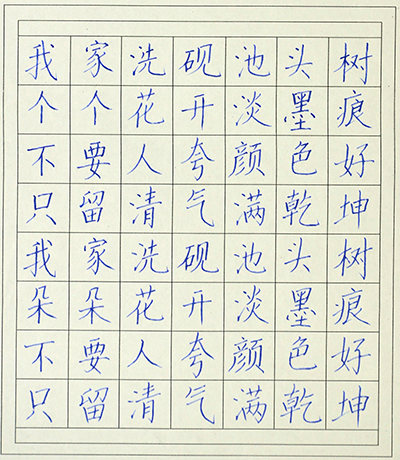 我家洗砚池头树
个个花开淡墨痕
不要人夸颜色好
只留清气满乾坤
我家洗砚池头树
朵朵花开淡墨痕
不要人夸颜色好
只留清气满乾坤